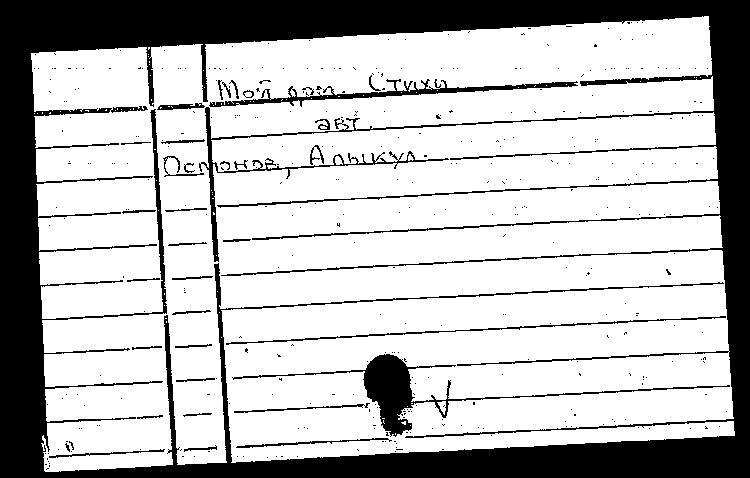 Мой дом. Стихи
авт.
Осмонов, Алыкул.